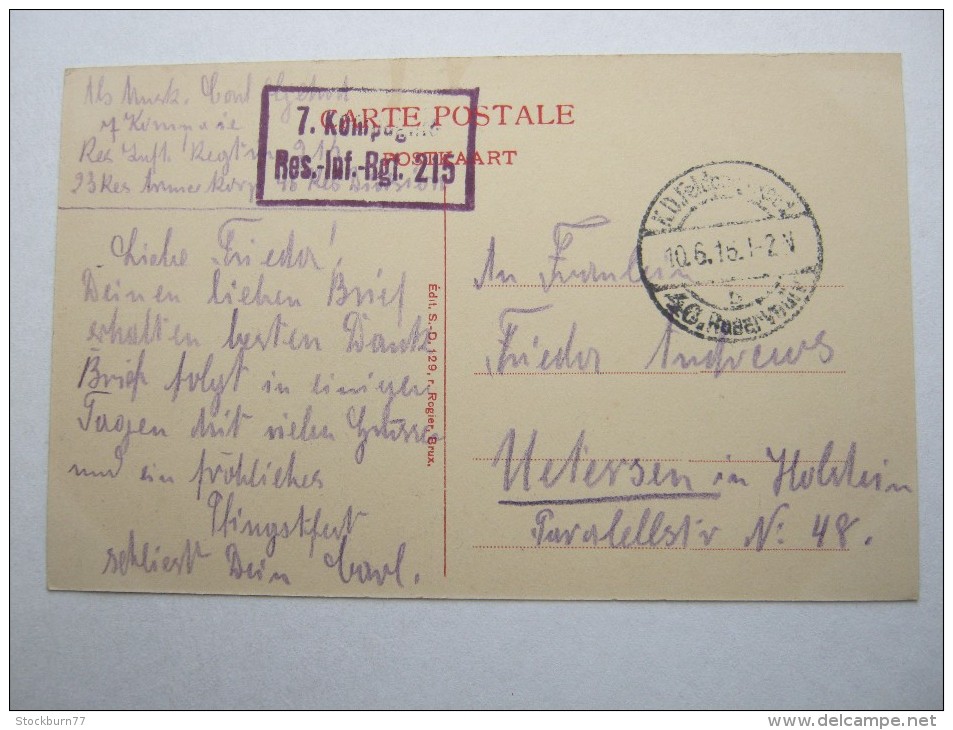 Als Musk. Carl
7 Kompanie
Res Inft. Regtm 215
23 Res Armee Korp 46 Res Division
7. Kompagnie
Res.-Inf.-Rgt. 215
CARTE POSTALE
POSTKAART
Liebe Frieda!
Deinen lieben Brief
erhalten besten Dank
Brief folgt in einigen
Tagen Mit vielen Grüssen
und ein fröhliches
Pfingstfest
schliest Dein Carl.
Édit. S.-D. 129, r. Rogier, Brux.
K.D. Feldpostexped.
10.6.15.1-2 V
b
46. Reserve
An Fraulein
Frieda Andrews
Uetersen in Holstein
Paralellstr No: 48.
Stockburn77
http://www.delcampe.net